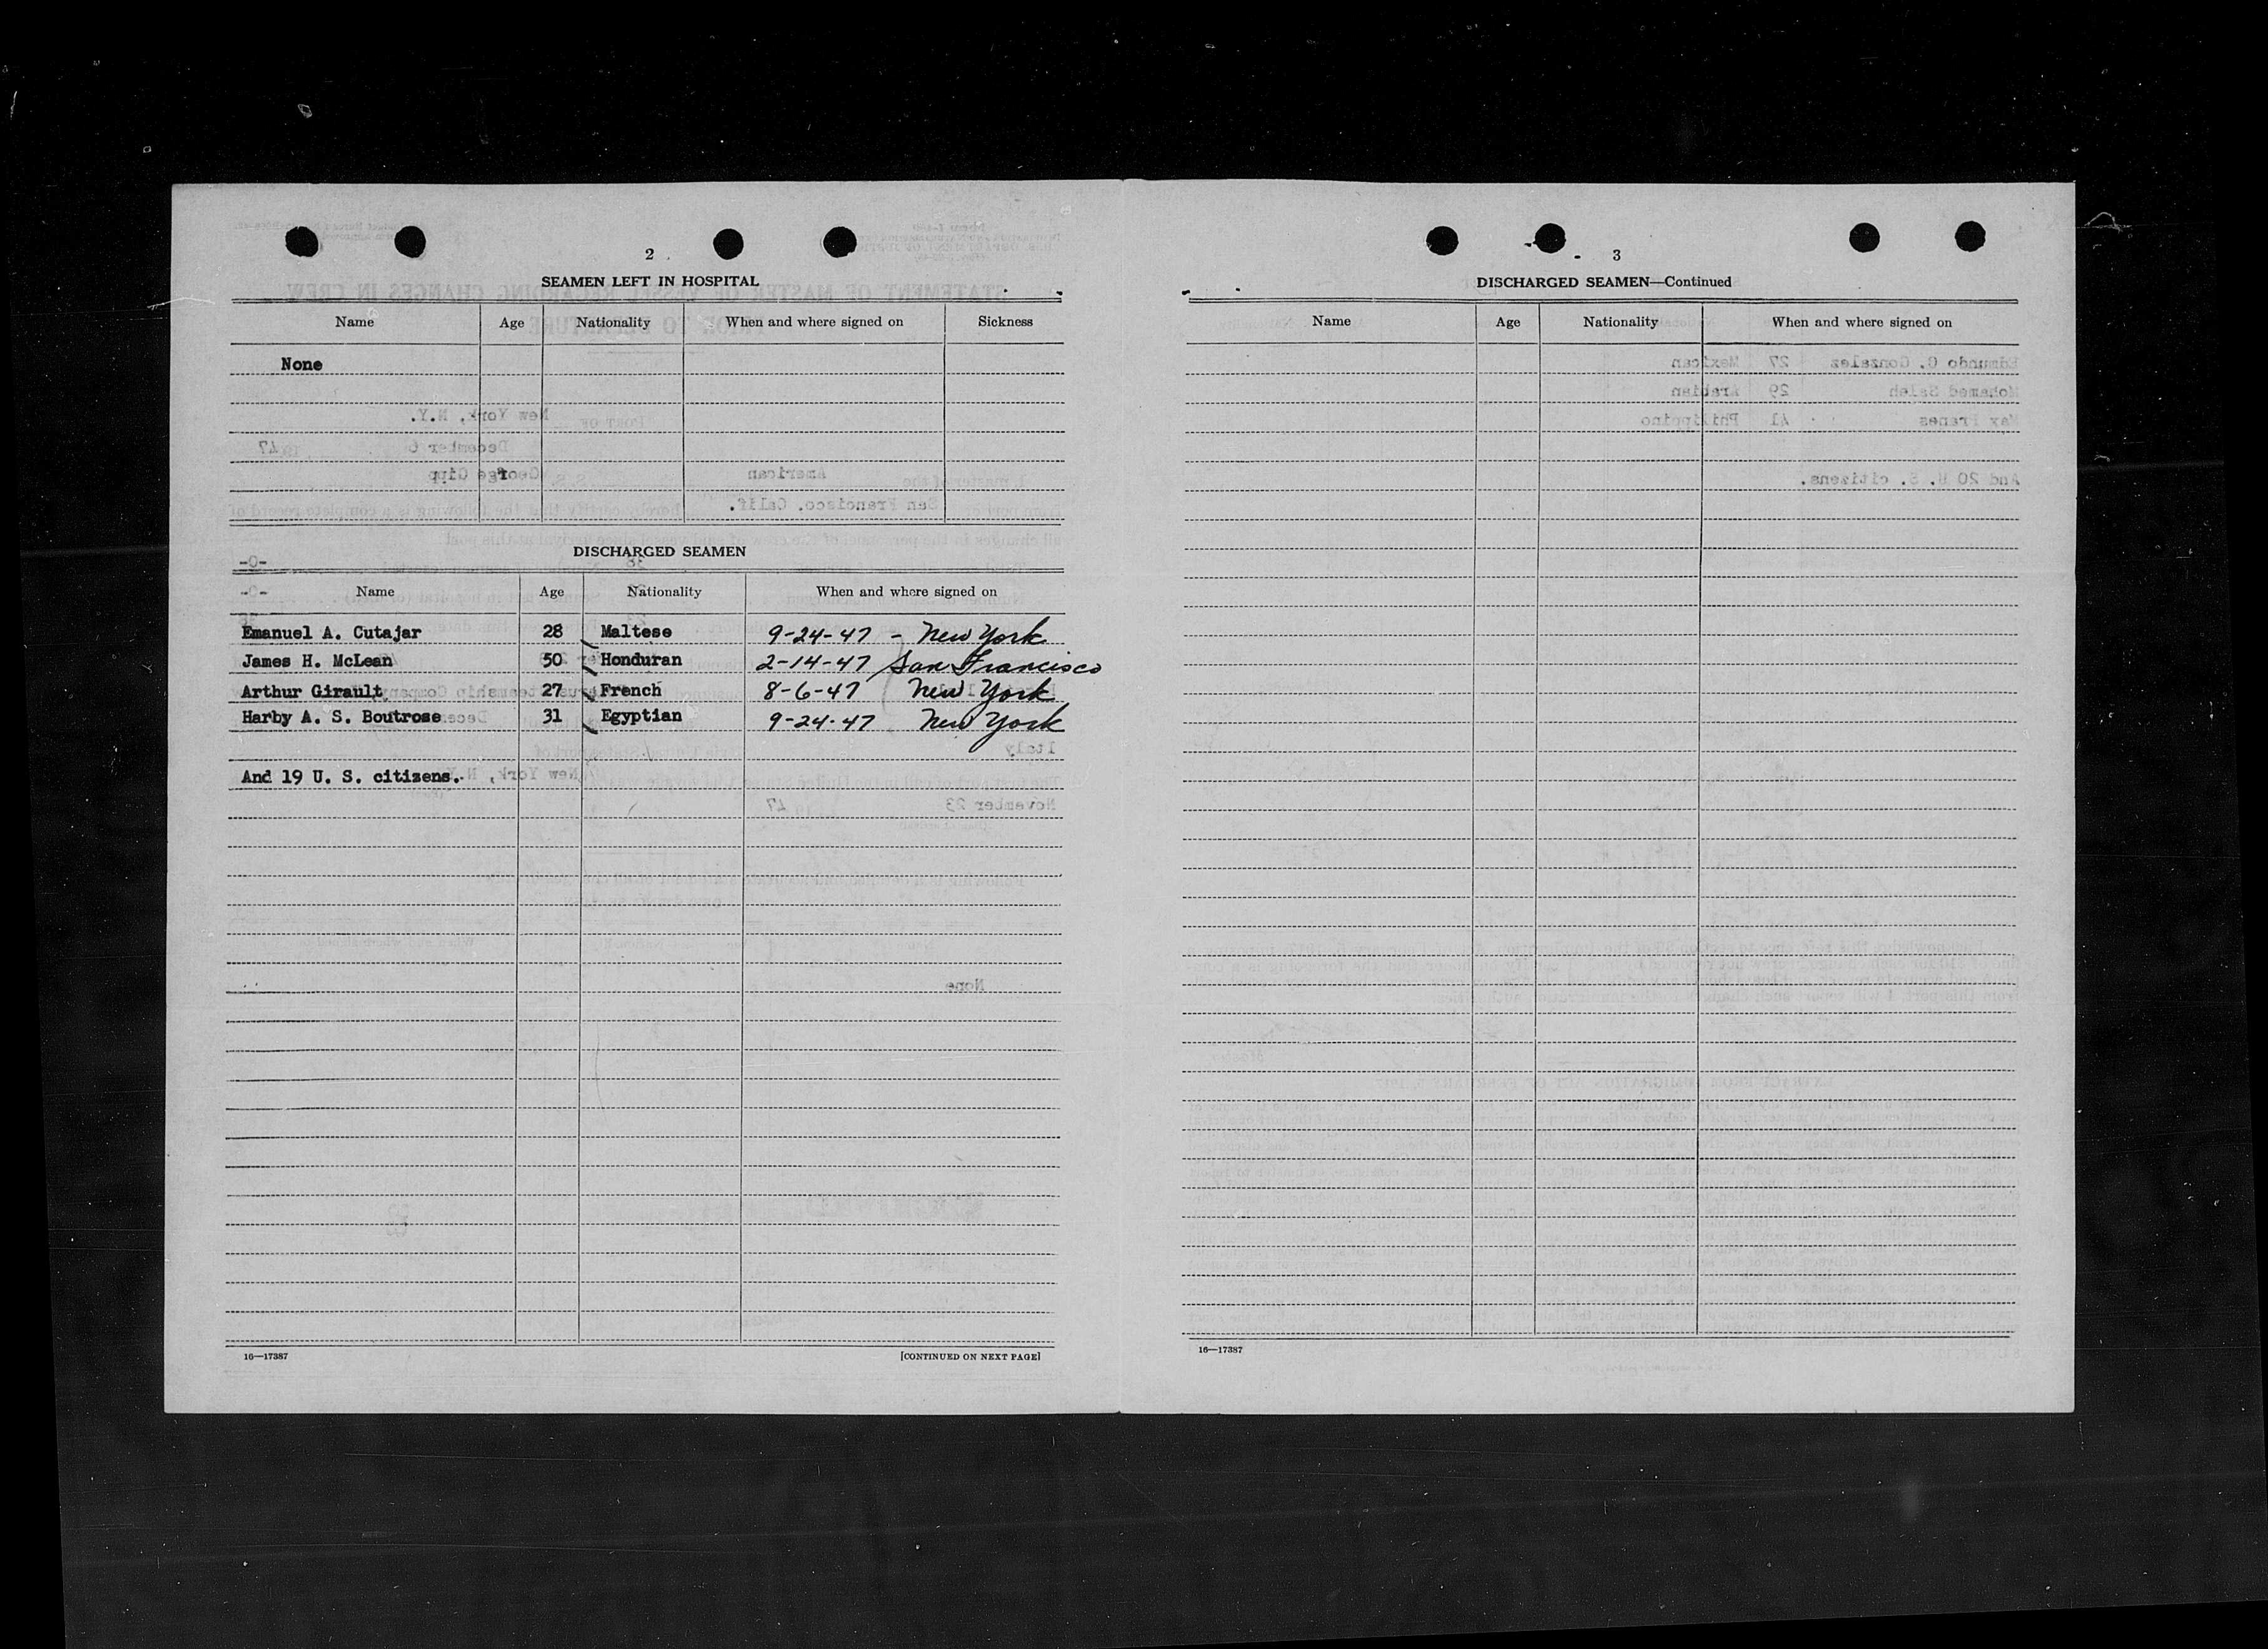 2
SEAMEN LEFT IN HOSPITAL
Name Age Nationality When and where signed on Sickness
None
DISCHARGED SEAMEN
Name Age Nationality When and where signed on
Emanuel A. Cutajar 28 Maltese 9-24-47 - New York
James H. McLean 50 Honduran 2-14-47 San Francisco
Arthur Girault 27 French 8-6-47 New York
Harby A. S. Boutrose 31 Egyptian 9-24-47 New York
And 19 U. S. citizens.
16—17387 [CONTINUED ON NEXT PAGE]
3
DISCHARGED SEAMEN—Continued
Name Age Nationality When and where signed on
16—17387